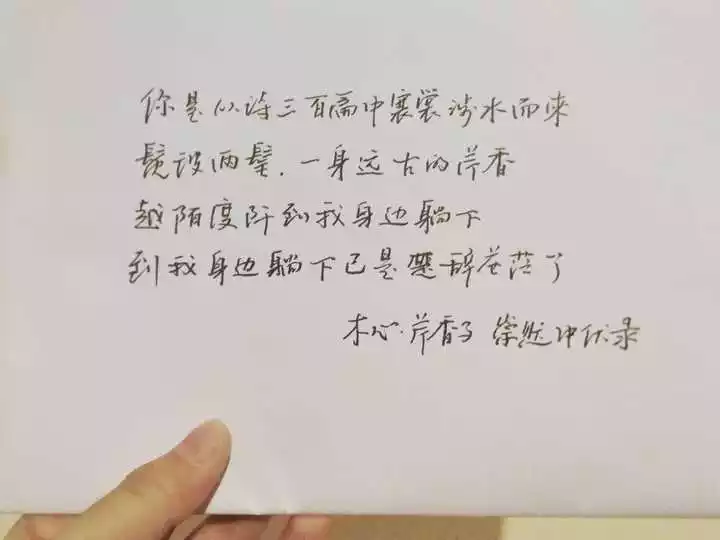 你是从诗三百篇中褰裳涉水而来
髧彼两髦，一身远古的芹香
越陌度阡到我身边躺下
到我身边躺下已是楚辞苍茫了
木心·芹香子 然中伏录